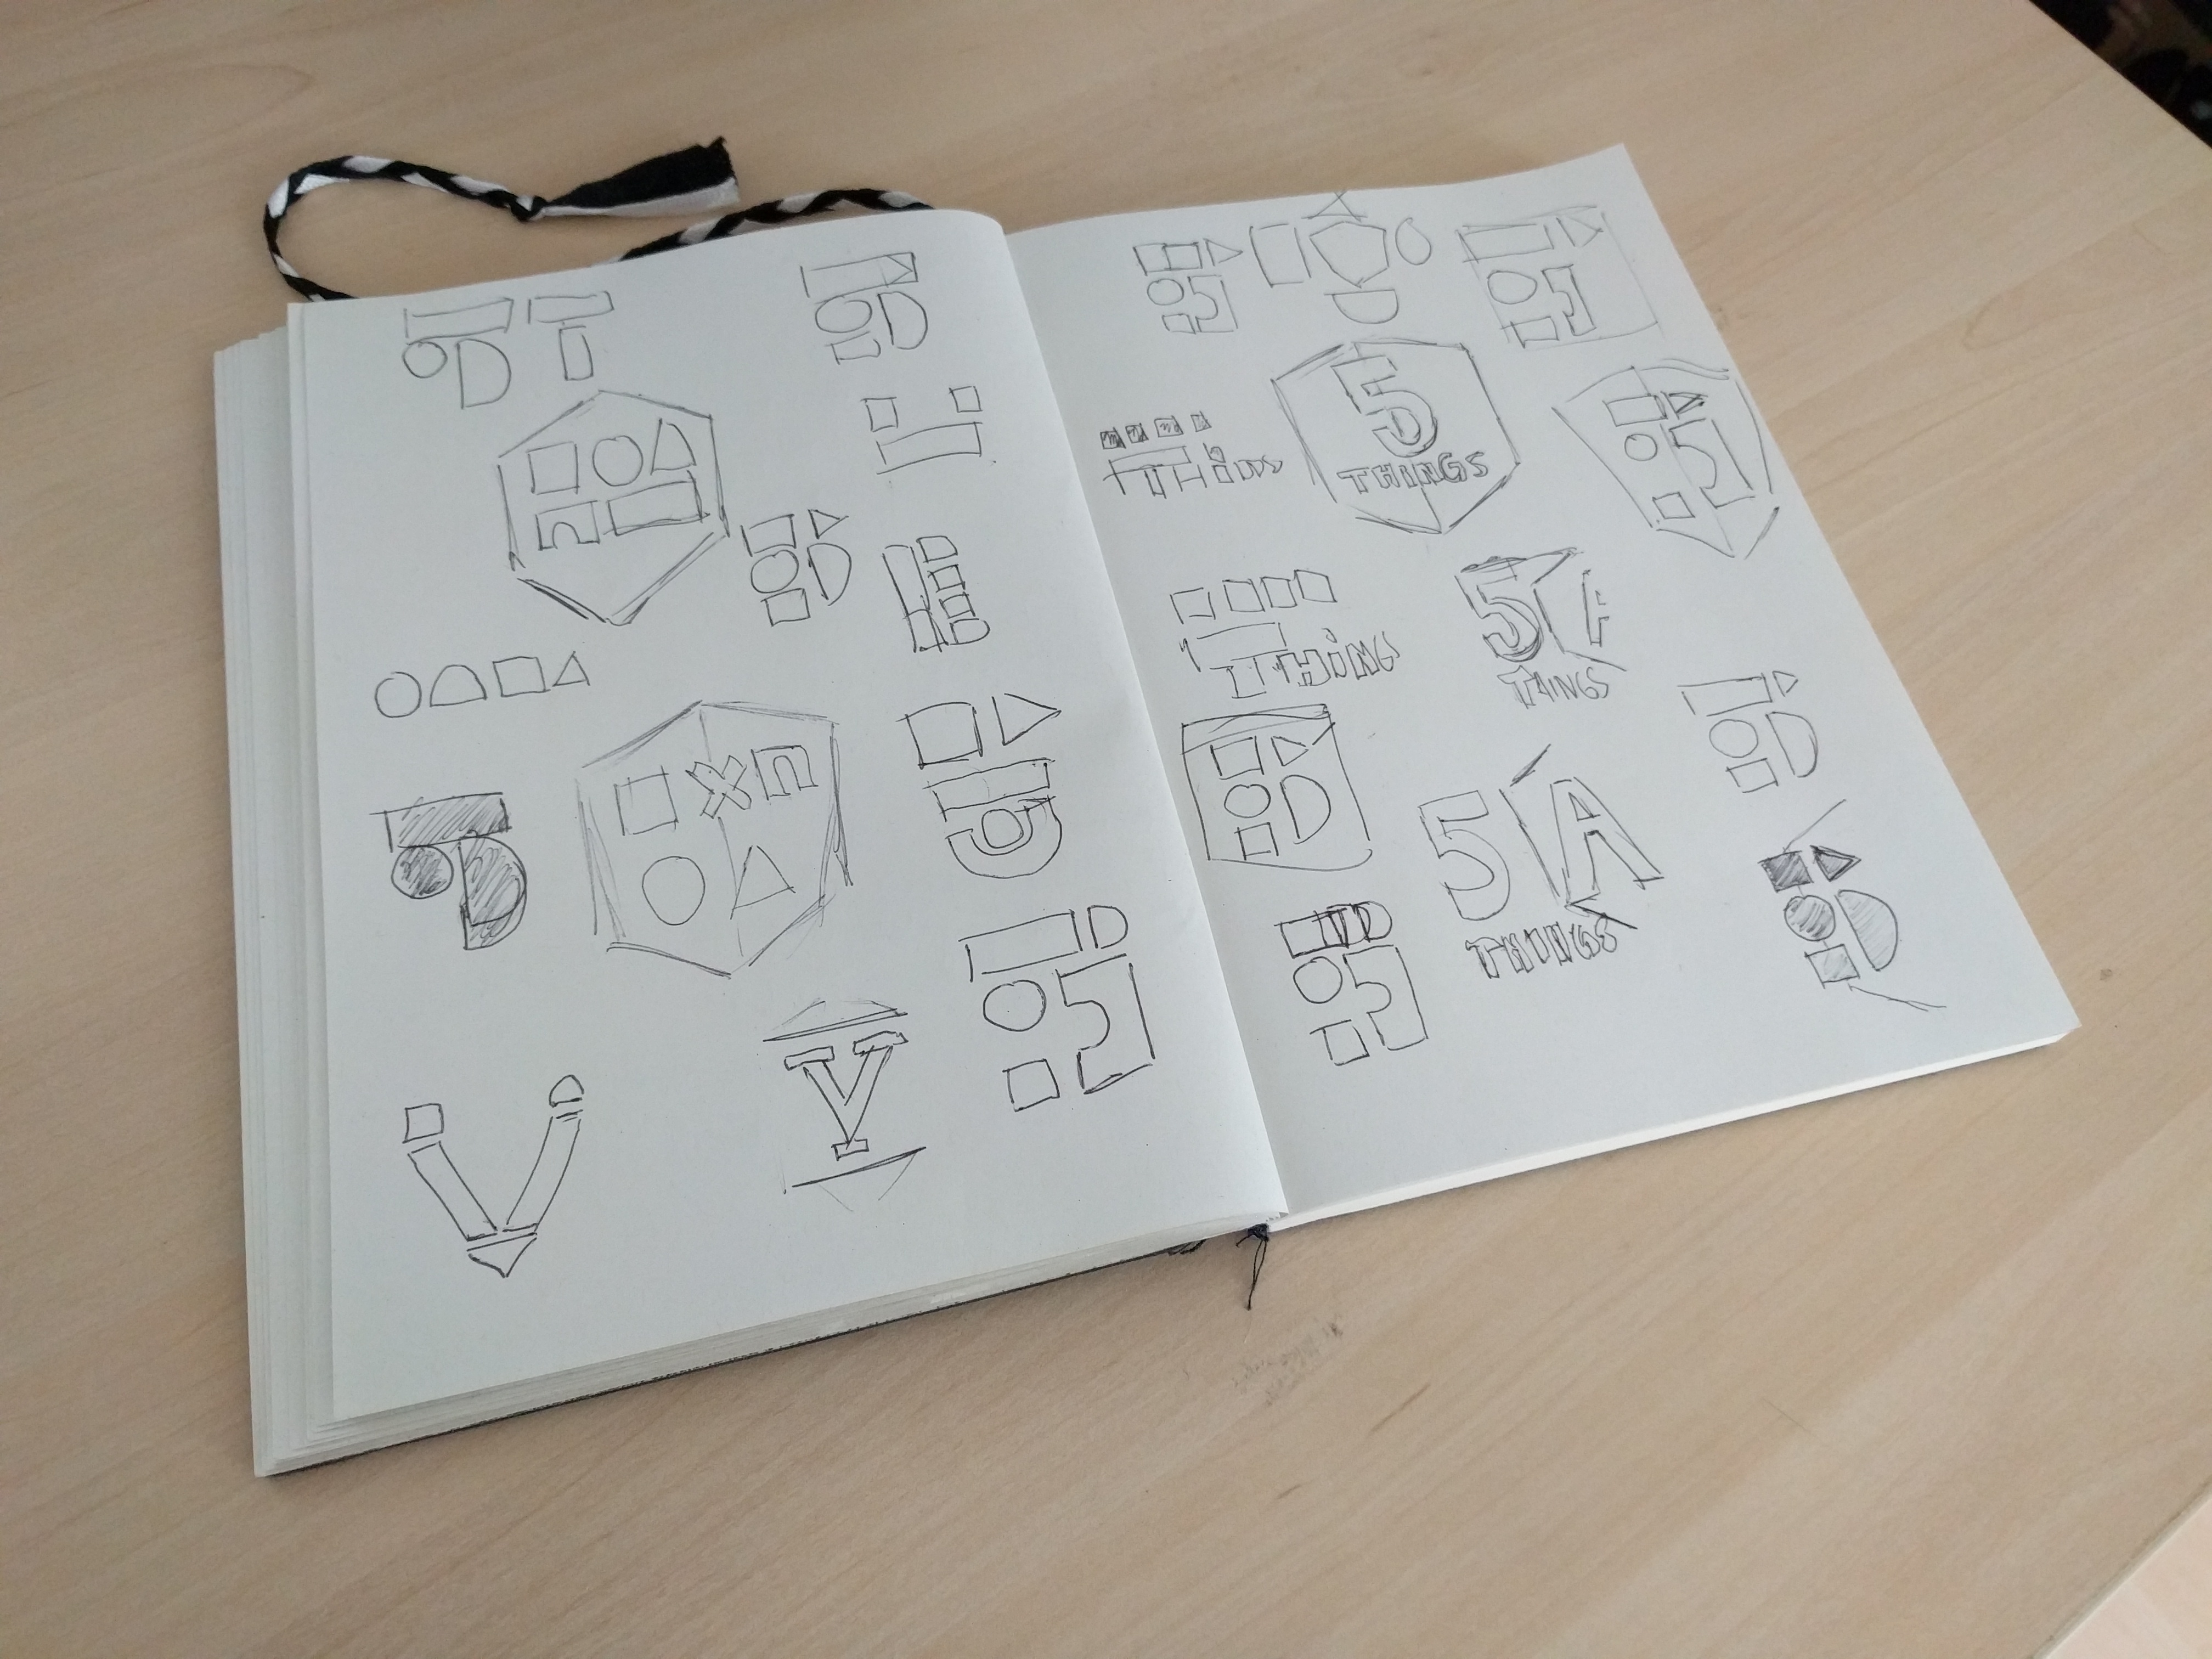 5
THINGS
THINGS
THINGS
5 A
THINGS
5 A
THINGS
V